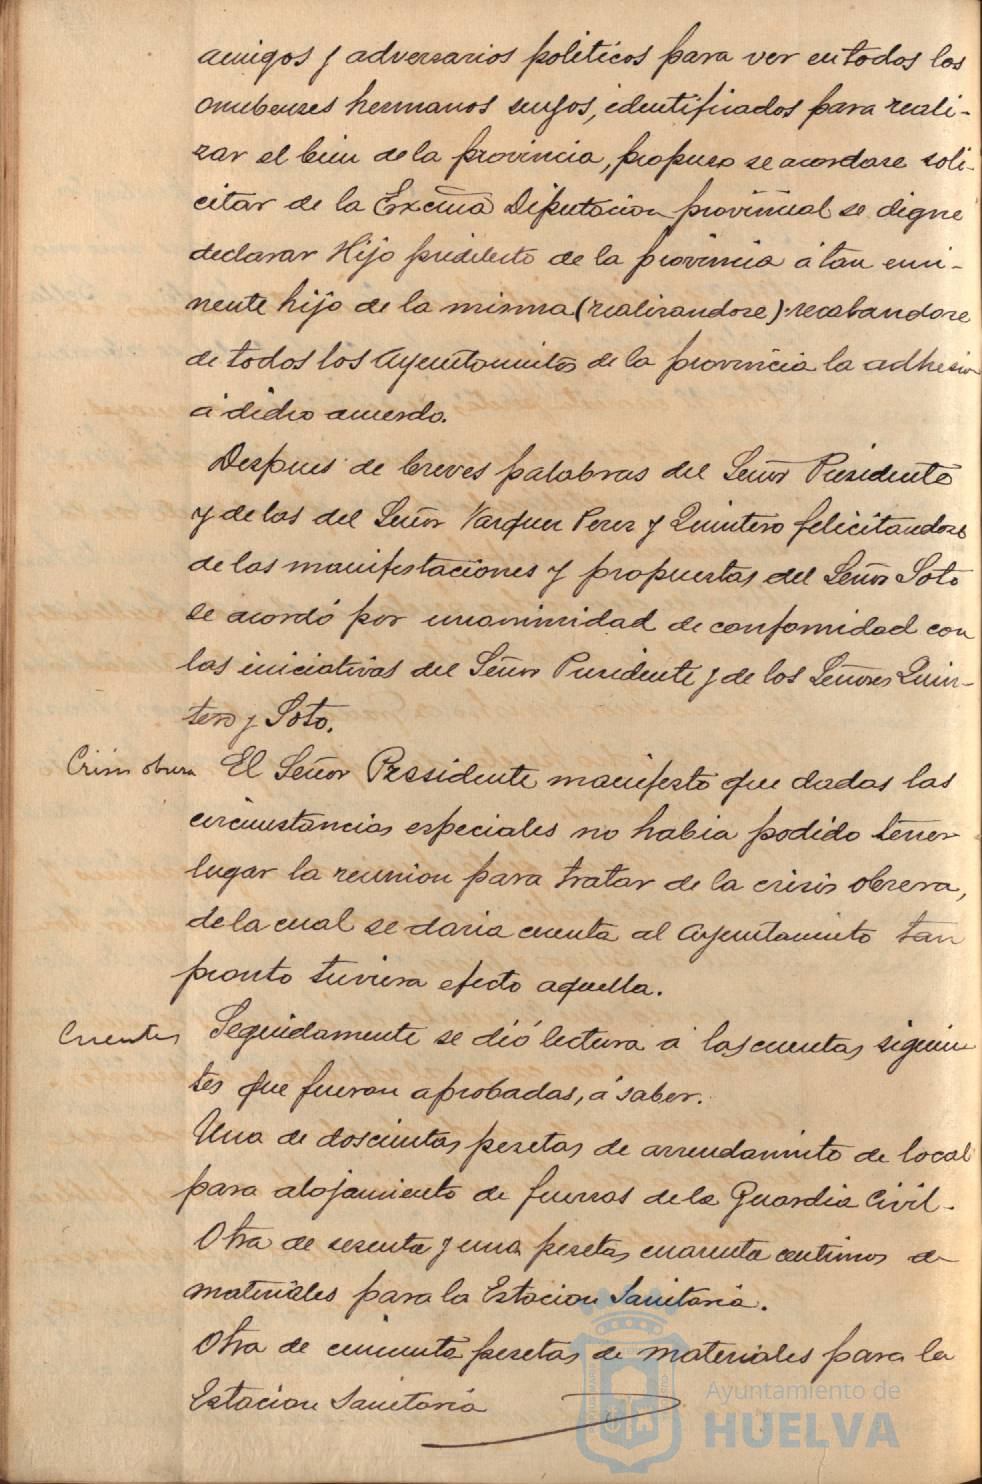 amigos y adversarios politicos para ver en todos los
onubenses hermanos suyos, identificados para reali-
zar el bien de la provincia, propuso se acordase soli-
citar de la Excma Diputacion provincial se digne
declarar Hijo predilecto de la provincia á tan emi-
nente hijo de la misma (realizandose) recabandose
de todos los Ayuntamientos de la provincia la adhesion
á dicho acuerdo.
Despues de breves palabras del Señor Presidente
y de las del Señor Vazquez Perez y Quintero felicitandose
de las manifestaciones y propuestas del Señor Soto
se acordó por unanimidad de conformidad con
las iniciativas del Señor Presidente y de los Señores Quin-
tero y Soto.
Crisis obrera El Señor Pressidente manifesto que dadas las
circunstancias especiales no habia podido tener
lugar la reunion para tratar de la crisis obrera,
de la cual se daria cuenta al Ayuntamiento tan
pronto tuviera efecto aquella.
Cuentas Seguidamente se dió lectura á las cuentas siguien
tes que fueron aprobadas, á saber.
Una de doscientas pesetas de arrendamiento de local
para alojamiento de fuerzas de la Guardia Civil.
Otra de sesenta y una pesetas cuarenta centimos de
materiales para la Estacion Sanitaria.
Otra de cincuenta pesetas de materiales para la
Estacion Sanitaria
Ayuntamiento de
HUELVA